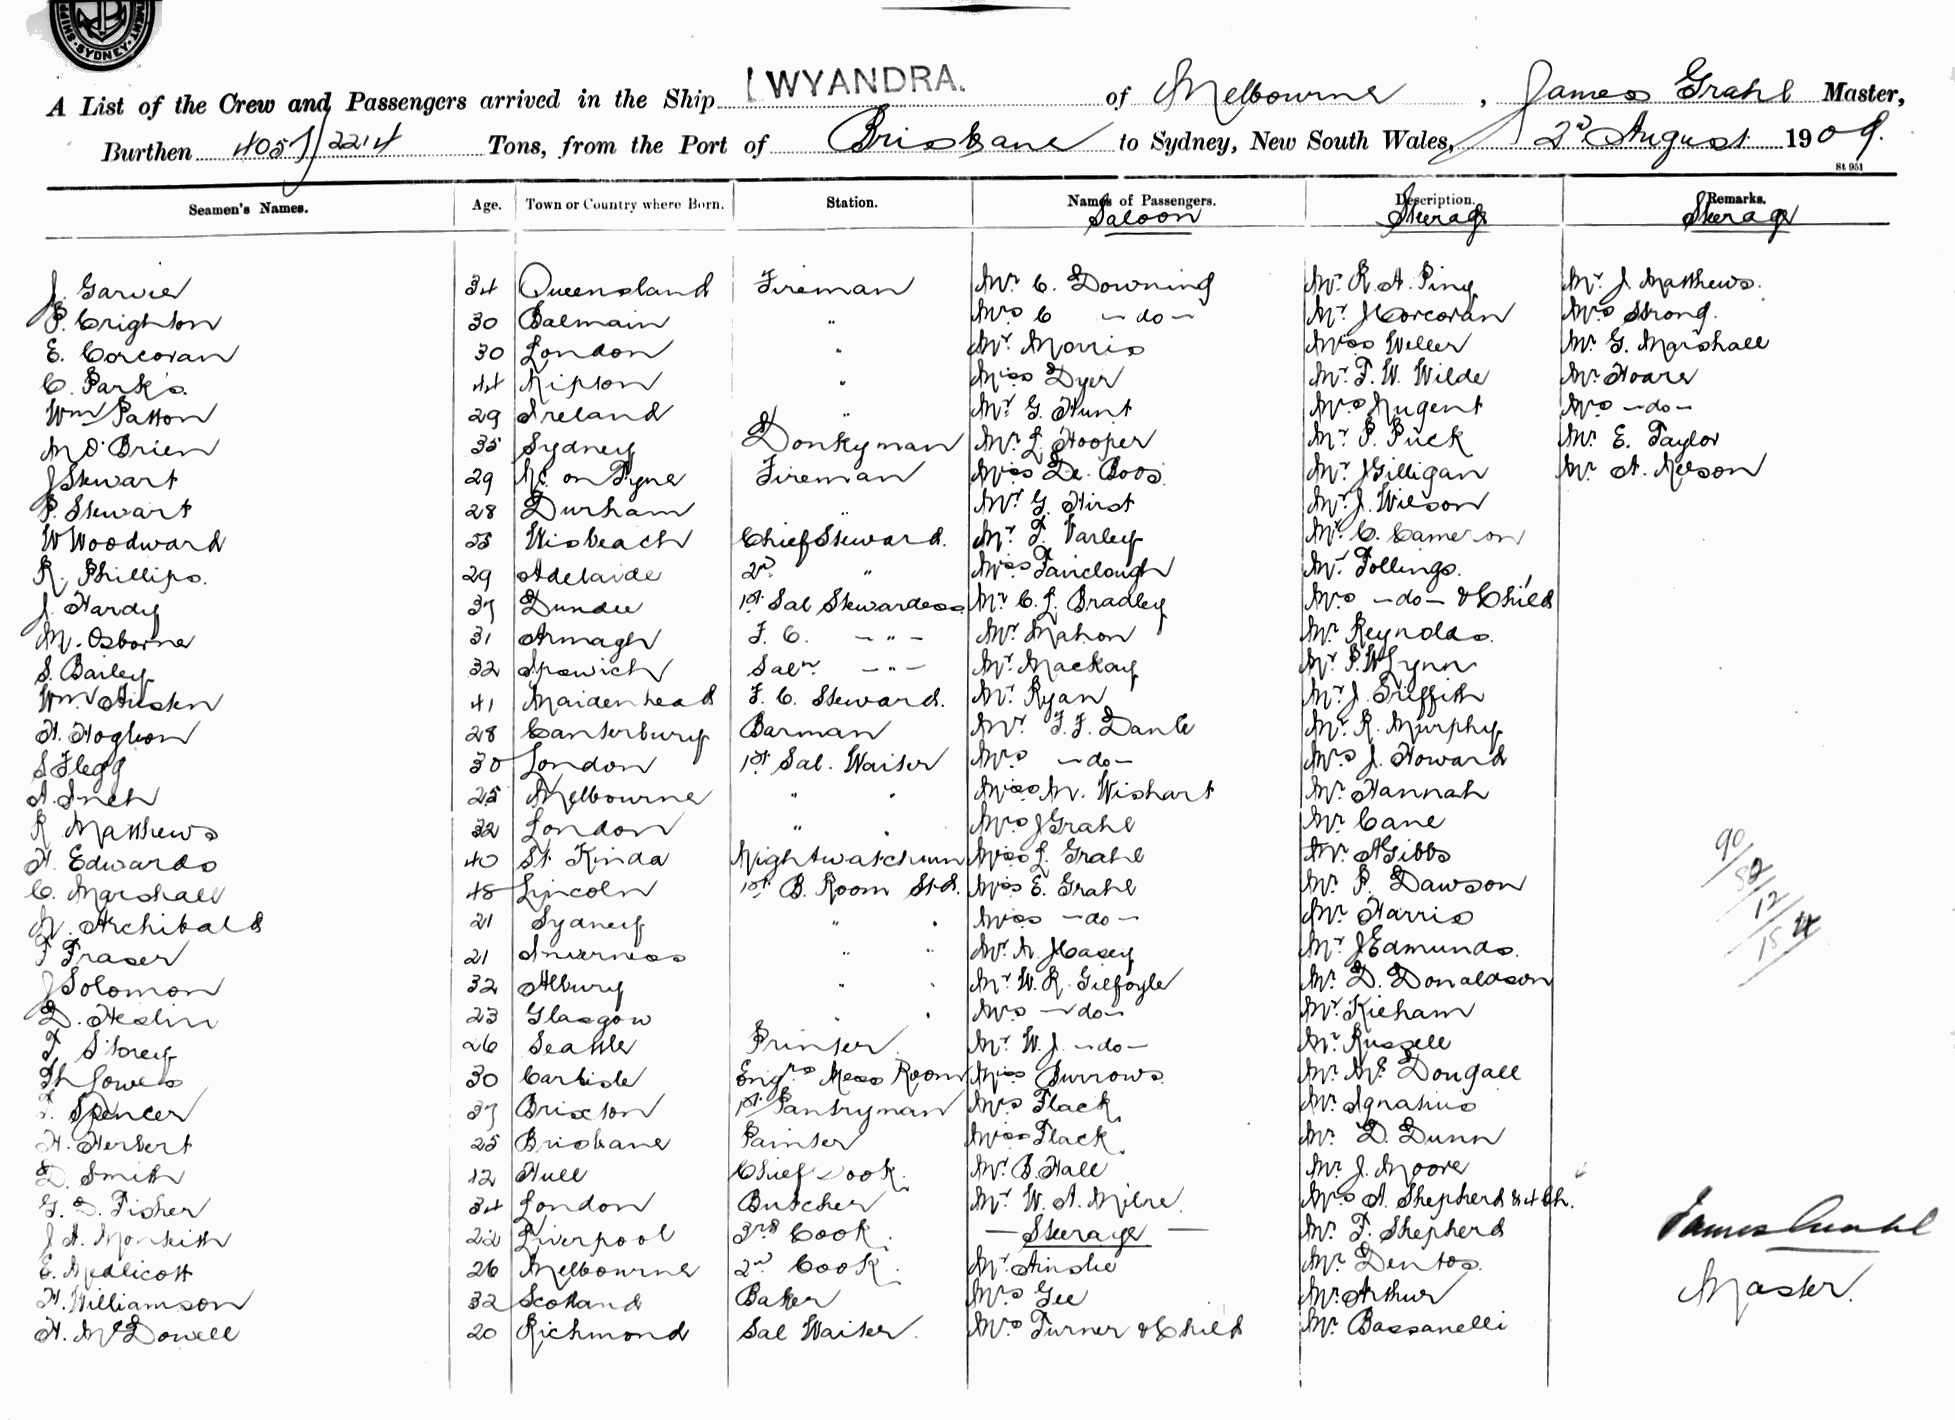 SYDNEY
WYANDRA.
A List of the Crew and Passengers arrived in the Ship WYANDRA. of Melbourne, James Grahl Master,
Burthen 4057/2214 Tons, from the Port of Brisbane to Sydney, New South Wales, 2nd August 1909.
St 951
Seamen's Names. Age. Town or Country where Born. Station. Names of Passengers. Description. Remarks.
Saloon Steerage Steerage
J. Garvie 34 Queensland Fireman Mr. C. Downing Mr. R. A. Ping Mr. J. Matthews.
P. Crighton 30 Balmain " Mrs C -do- Mr. J Corcoran Mrs Strong.
E. Corcoran 30 London " Mr. Morris Miss Weller Mr. G. Marshall
C. Parks. 44 Ripton " Miss Dyer Mr. F. W. Wilde Mr. Hoare
Wm Patton 29 Ireland " Mr. G. Hunt Mrs Nugent Mrs -do-
M O'Brien 35 Sydney Donkyman Mr. L. Hooper Mr. P. Puck Mr. E. Taylor
J Stewart 29 Nc. on Tyne Fireman Miss De. Boos. Mr. J Gilligan Mr. A. Nelson
P. Stewart 28 Durham " Mr. G. Hirst Mr. J. Wilson
W Woodward 55 Wisbeach Chief Steward. Mr. F. Varley Mr. C. Cameron
R. Phillips. 29 Adelaide 2nd " Miss Fairclough Mr. Follings.
J. Hardy 37 Dundee 1st Sal Stewardess Mr. C. L. Bradley Mrs -do- & Child
M. Osborne 31 Armagh F. C. - " - Mr. Mahon Mr. Reynolds.
S. Bailey 32 Ipswich Saln. - " - Mr. Mackay Mr. P. W Lynn
Wm. Austen 41 Maidenhead F. C. Steward. Mr. Ryan Mr. J. Griffith
H. Hogbon 28 Canterbury Barman Mr. F. F. Dante Mr. R. Murphy
S Flegg 30 London 1st Sal. Waiter Mrs -do- Mrs J. Howard
A. Inch 25 Melbourne " " Miss M. Wishart Mr. Hannah
R Matthews 32 London " " Mrs J Grahl Mr. Cane
H. Edwards 40 St. Kinda Nightwatchmn Miss L. Grahl Mr. A Gibbs
C. Marshall 48 Lincoln 1st B. Room Std. Miss E. Grahl Mr. P. Dawson
N. Archibald 21 Sydney " " Miss -do- Mr. Harris
F Fraser 21 Inverness " " Mr. A. J Casey Mr. J Edmunds.
J Solomon 32 Albury " " Mr. W. R. Gilfoyle Mr. D. Donaldson
D. Heslin 23 Glasgow " " Mrs -do- Mr. Kieham
F. Storey 26 Seattle Printer. Mr. W. J. -do- Mr. Russell
Th Lowes 30 Carlisle Engrs Mess Room Miss Burrows. Mr. Mc Dougall
F. Spencer 37 Brixton 1st Pantryman Mrs Flack. Mr. Ignatius
H. Herbert 25 Brisbane Painter Miss Flack. Mr. D. Dunn
D. Smith 42 Hull Chief Cook. Mr. B. Hall Mr. J. Moore
G. D. Fisher 34 London Butcher Mr. W. A. Milne. Mrs A. Shepherd & 4 Ch.
J A. Monkith 22 Liverpool 3rd Cook. - Steerage - Mr. F. Shepherd
E. Medlicott 26 Melbourne 2nd Cook. Mr. Ainslie Mr. Dentos.
H. Williamson 32 Scotland Baker Mrs Gee Mr. Arthur
H. McDowell 20 Richmond Sal Waiter. Mrs Turner & Child Mr. Bassanelli
90/
52/
12/
154
James Grahl
Master.